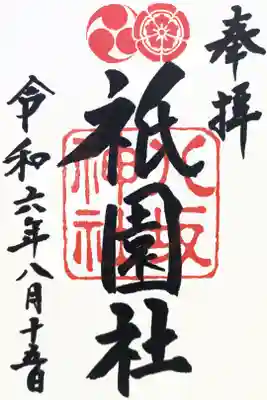 奉拝
祇園社
八坂
神社
令和六年八月十五日